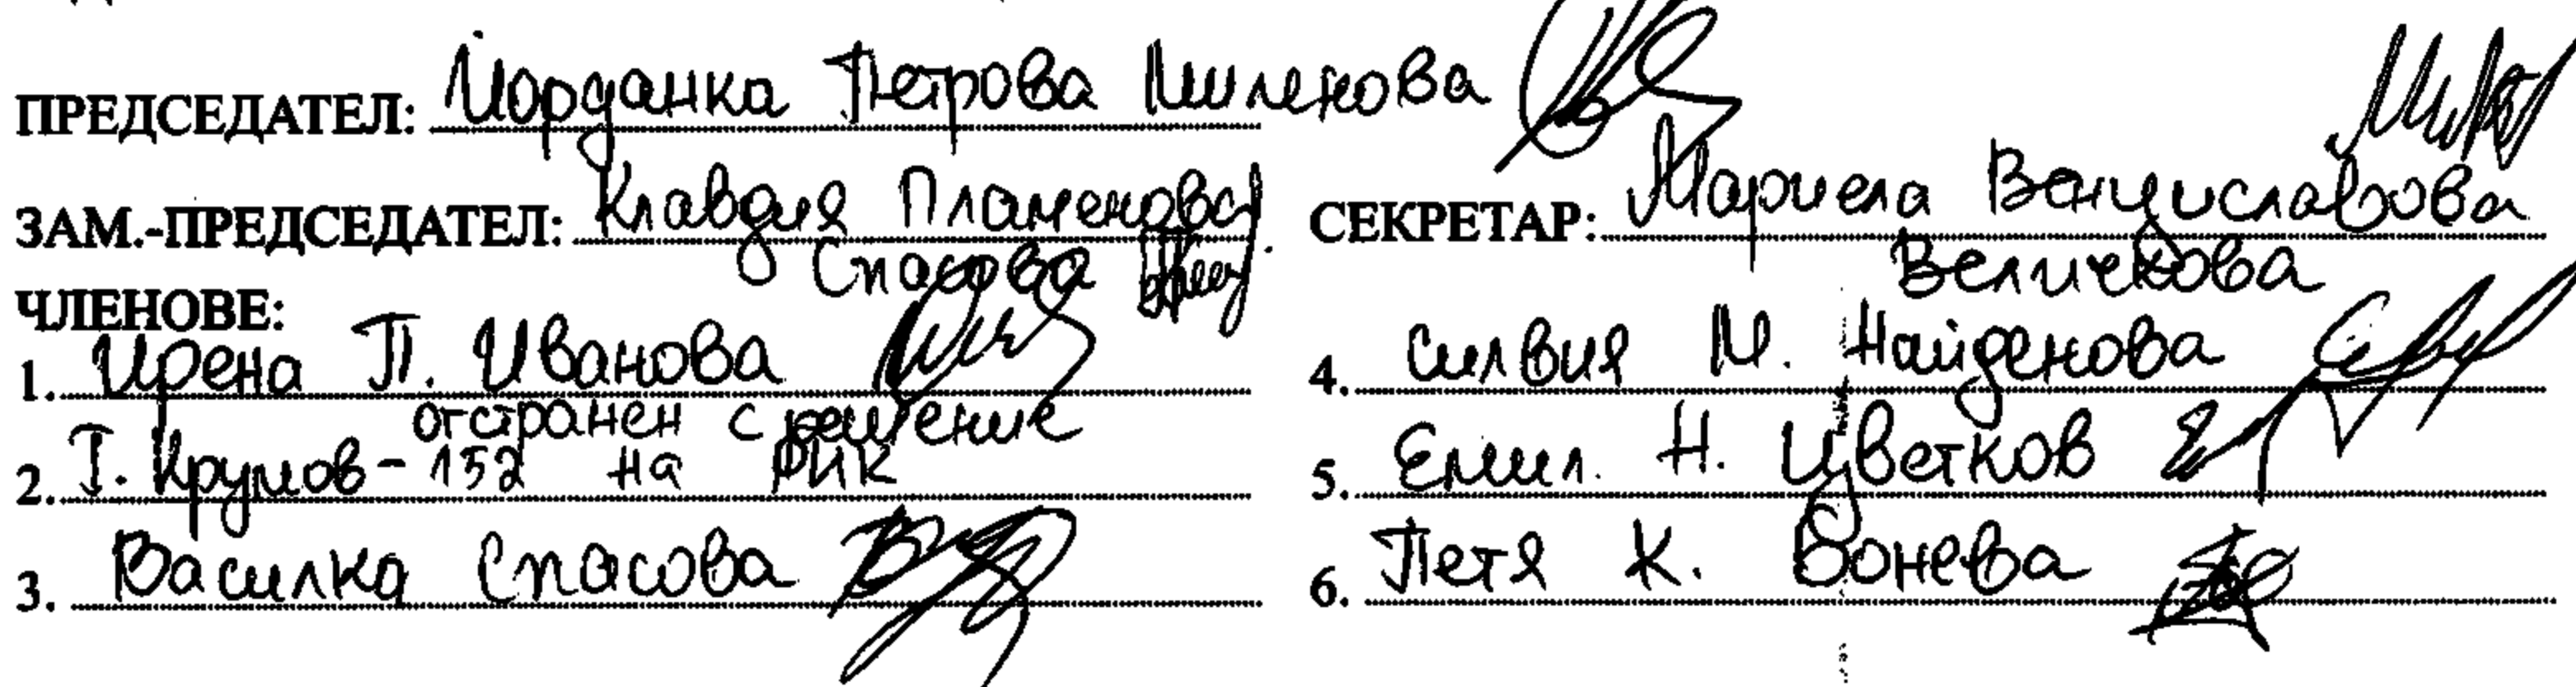 ПРЕДСЕДАТЕЛ: Йорданка Петрова Миленова
ЗАМ.-ПРЕДСЕДАТЕЛ: Клавдия Пламенова
Спасова
СЕКРЕТАР: Мариела Венциславова
Величкова
ЧЛЕНОВЕ:
1. Ирена П. Иванова
отстранен с решение
2. Т. Крумов - 152 на РИК
3. Василка Спасова
4. Силвия М. Найденова
5. Емил. Н. Цветков
6. Петя К. Бонева